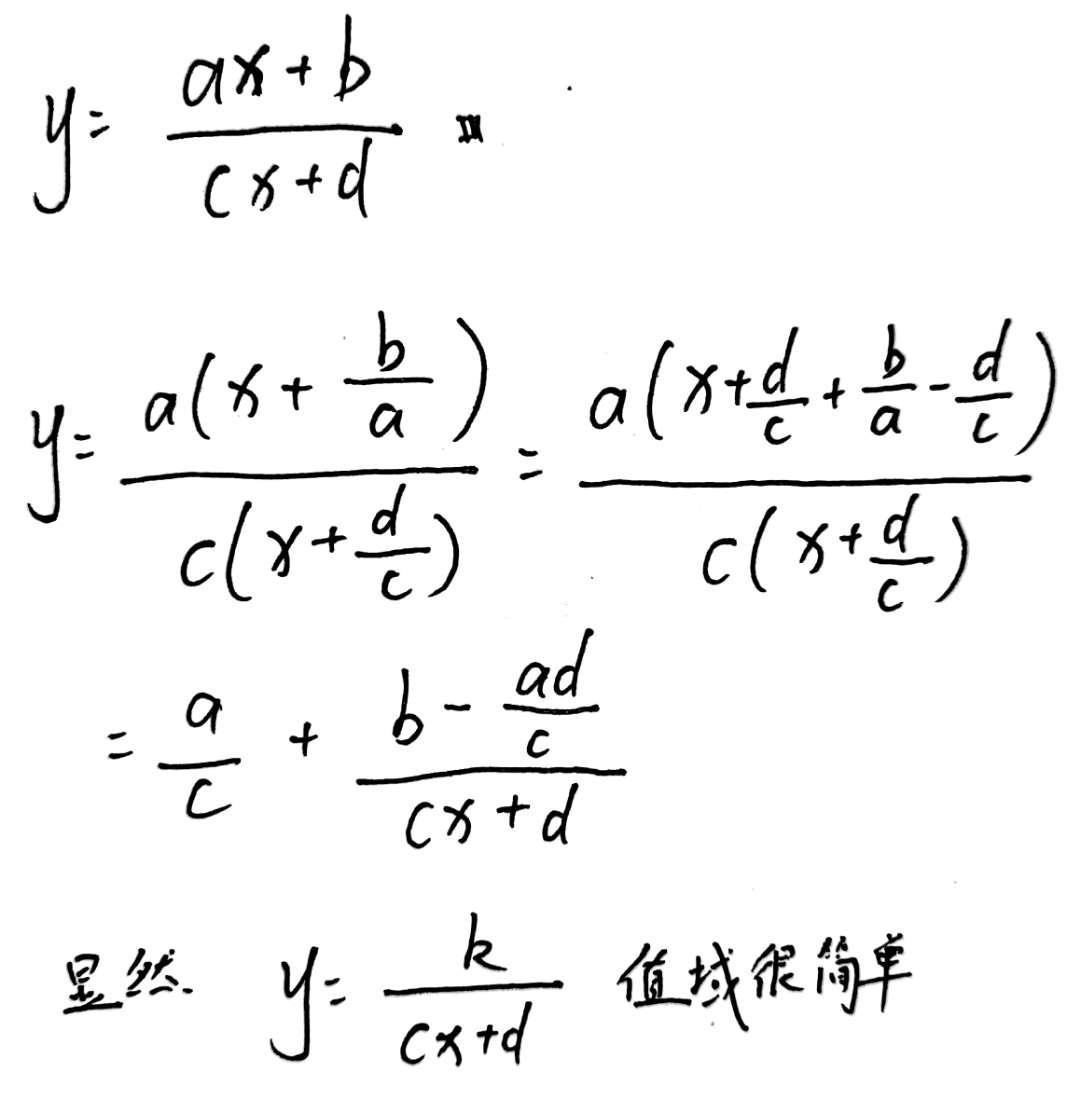 y = \frac{ax+b}{cx+d}
y = \frac{a(x+\frac{b}{a})}{c(x+\frac{d}{c})} = \frac{a(x+\frac{d}{c}+\frac{b}{a}-\frac{d}{c})}{c(x+\frac{d}{c})}
= \frac{a}{c} + \frac{b-\frac{ad}{c}}{cx+d}
显然. y = \frac{k}{cx+d} 值域很简单